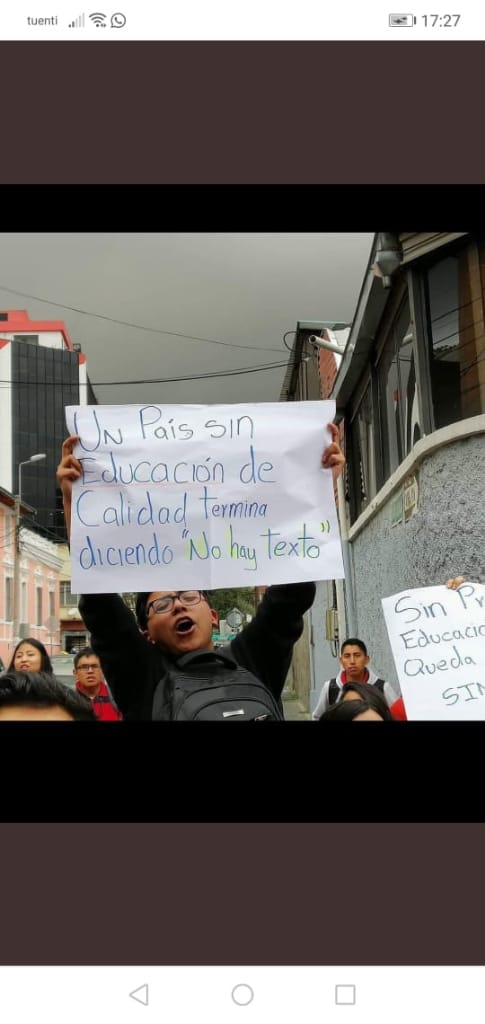 tuenti
17:27
UN País sin
Educación de
Calidad termina
diciendo "No hay Texto"
Sin
Educació
Queda
SIN